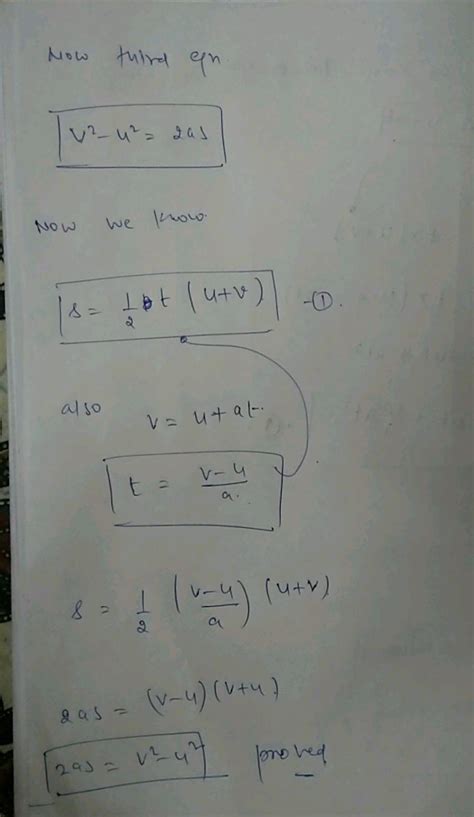 Now third eqn.
v² - u² = 2as
Now we know.
s = 1/2 t (u+v) -①.
also v = u + at.
t = (v-u)/a.
s = 1/2 ((v-u)/a) (u+v)
2as = (v-u)(v+u)
2as = v² - u² proved